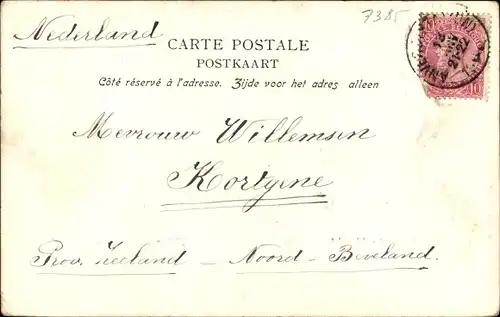 7385
Nederland
CARTE POSTALE
POSTKAART
Côté réservé à l'adresse. Zijde voor het adres alleen
10
Mevrouw Willemsen
Kortgene
Prov. Zeeland – Noord-Beveland.